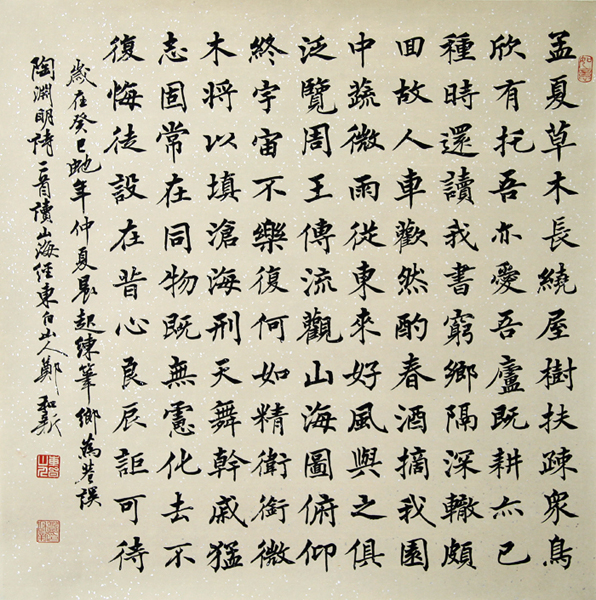 孟夏草木長繞屋樹扶疎衆鳥
欣有托吾亦愛吾廬既耕亦已
種時還讀我書窮鄉隔深轍頗
回故人車歡然酌春酒摘我園
中蔬微雨從東來好風與之俱
泛覽周王傳流觀山海圖俯仰
終宇宙不樂復何如精衛銜微
木將以填滄海刑天舞幹戚猛
志固常在同物既無慮化去不
復悔徒設在昔心良辰詎可待
歲在癸巳虵年仲夏晨起練筆
陶淵明詩二首讀山海經東白山人鄭和新